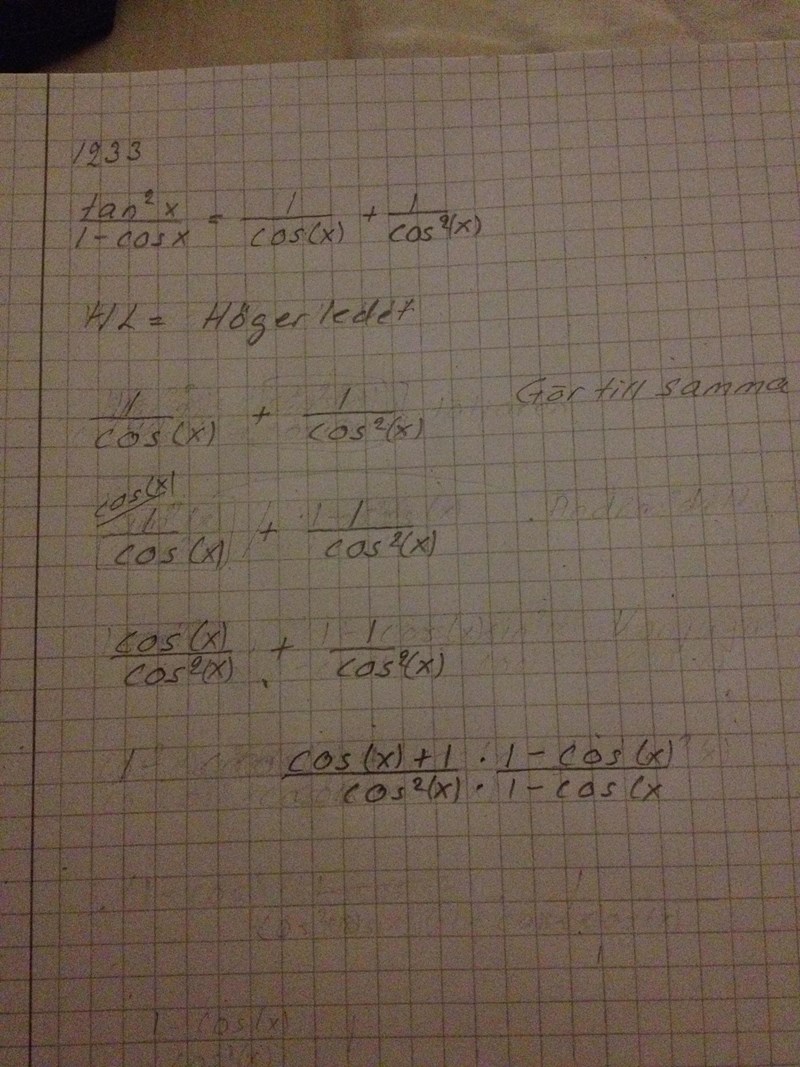 1233
tan²x / 1-cosx = 1 / cos(x) + 1 / cos²(x)
HL = Högerledet
1 / cos(x) + 1 / cos²(x) Gör till samma
cos(x)
1 / cos(x) + 1 / cos²(x)
cos(x) / cos²(x) + 1 / cos²(x)
cos(x)+1 · 1-cos(x) / cos²(x) · 1-cos(x